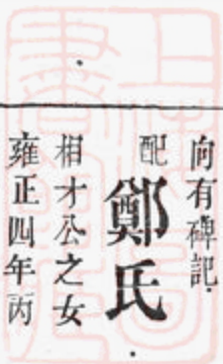 向有碑記
配鄭氏
相才公之女
雍正四年丙